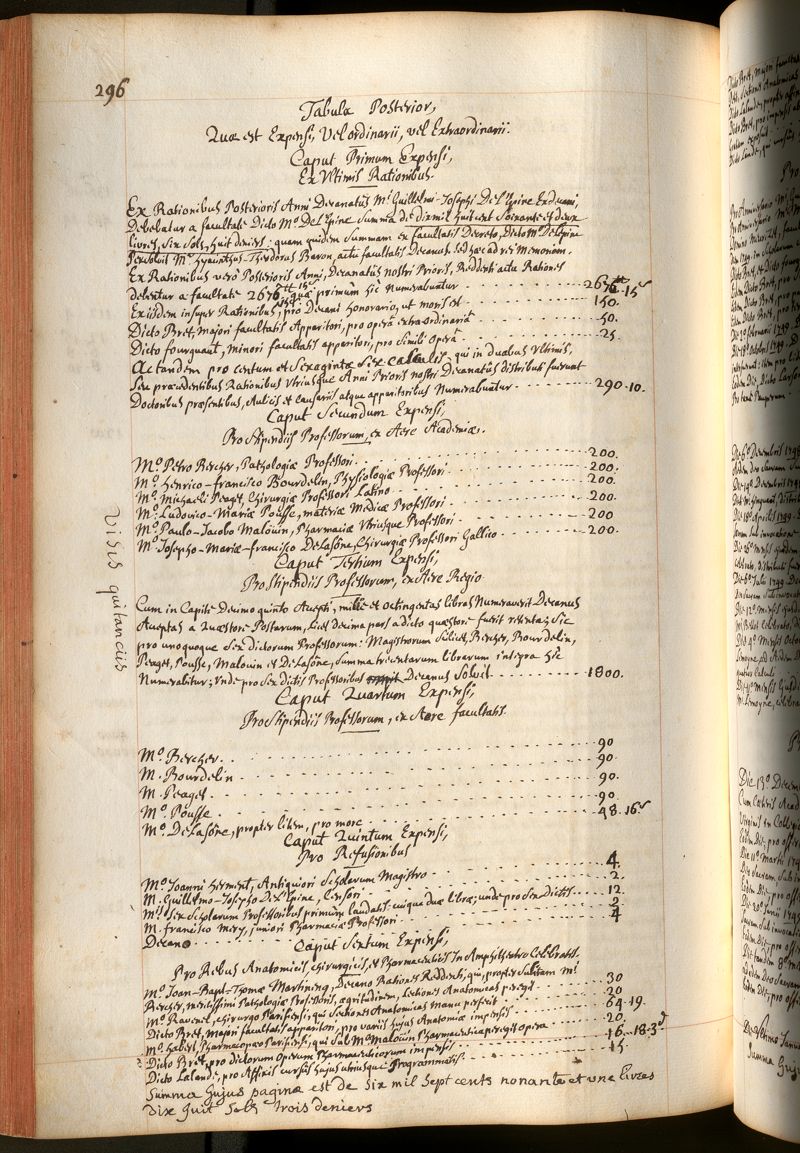 296
Tabula Posterior,
Quæ est Expensi, Vel ordinarii, vel Extraordinarii.
Caput Primum Expensi,
Ex Vltimis Rationibus.
Ex Rationibus Posterioris Anni Decanatûs Mi Guillelmi-Josephi De L'Epine Exdecani,
Debebatur a facultate Dicto Mo De L'Epine Summa de dix mil huit cent soixante et deux
livres, six sols, huit deniers: quam quidem Summam ex facultatis Decreto, Dicto Mo De L'Epine
Persolvit Mr Hyacinthus-Theodorus Baron, actu facultatis Decanus. sed hæc ad rei Memoriam.
Ex Rationibus verò Posterioris Anni, Decanatûs nostri Prioris, Reddenti actu Rationes
debetur a facultate 2676tt 15s quæ primùm hîc Numerabuntur 2676tt 15s
Eiusdem insuper Rationibus, pro Decani Honorario, ut moris est 150.
Dicto Bret, Majori facultatis Apparitori, pro operâ extraordinariâ 50.
Dicto fourquaut, minori facultatis apparitori, pro Simili operâ 25.
ac tandem pro centum et Sexagintæ Sex calculis, qui in duabus Vltimis,
Seu præcedentibus Rationibus Vtriusque Anni Prioris nostri Decanatûs distributi fuerunt
Doctoribus præsentibus, Aulicis et causariis atque apparitoribus Numerabuntur 290-10.
Caput Secundum Expensi,
Pro Stipendiis Professorum, ex Aere Academiæ.
Mo Petro Bercher, Pathologiæ Professori 200.
Mo Henrico-francisco Bourdelin, Physiologiæ Professori 200.
Mo Michaeli Peaget, Chirurgiæ Professori Latino 200.
Mo Ludovico-Mariæ Pousse, materiæ Medicæ Professori 200
Mo Paulo-Jacobo Maloüin, Pharmaciæ Vtriusque Professori 200
Mo Josepho-Mariæ-francisco DeLasône, Chirurgiæ Professori Gallico 200.
Caput Tertium Expensi,
Pro Stipendiis Professorum, ex Aere Regio
Visis quitanciis
Cum in Capite Decimo quinto Accepti, mille et octingentas libras Numeraverit Decanus
Acceptas a Quæstore Postarum, licet decima pars a dicto quæstore fuerit retenta; Sic
pro unoquoque Sex dictorum Professorum: Magistrorum Scilicet, Bercher, Bourdelin,
Peaget, Pousse, Maloüin et DeLasône, Summa trecentarum librarum integra hîc
Numerabitur; Unde pro Sex dictis Professoribus Decanus Solvit 1800.
Caput Quartum Expensi,
Pro Stipendiis Professorum, ex Aere facultatis.
Mo Bercher 90
M. Bourdelin 90.
M. Peaget 90.
Mo Pousse 90.
Mo DeLasône, propter litem, pro more 48.16s
Caput Quintum Expensi,
Pro Refusionibus
Mo Joanni Herment, Antiquiori Scholarum Magistro 4.
M. Guillelmo-Josepho De L'Epine, Censori 2.
Mis Sex Scholarum Professoribus primùm laudatis cuique duæ libræ; unde pro Sex Dictis 12.
M. francisco Mery, juniori Pharmaciæ Professori 2
Decano 4
Caput Sextum Expensi,
Pro Rebus Anatomicis, chirurgicis, et Pharmaceuticis In Amphitheatro Celebratis.
Mo Joan-Bapt-Tomæ Martineng, Decano Rationes Reddenti, qui, propter Subitam Mi
Bercher, meritissimi Pathologiæ Professoris, ægritudinem, Lectiones Anatomicas peregit 30
Mo Ravenet, Chirurgo Parisiensi, qui Sectiones Anatomicas Manu perfecit 20
Dicto Bret, Majori facultatis apparitori, pro variis hujus Anatomiæ impensis 64-19.
Mo Habert, Pharmacopæo Parisiensi, qui Sub Mo Maloüin Pharmaceutica peregit opera 20.
Dicto Bret, pro dictorum Operum Pharmaceuticorum impensis 16-18-3d
Dicto Lalande, pro Affixis cursûs hujus utriusque Programmatis 15.
Summa hujus paginæ est de Six mil Sept cents nonante et une Livres
Dix huit Sols trois deniers